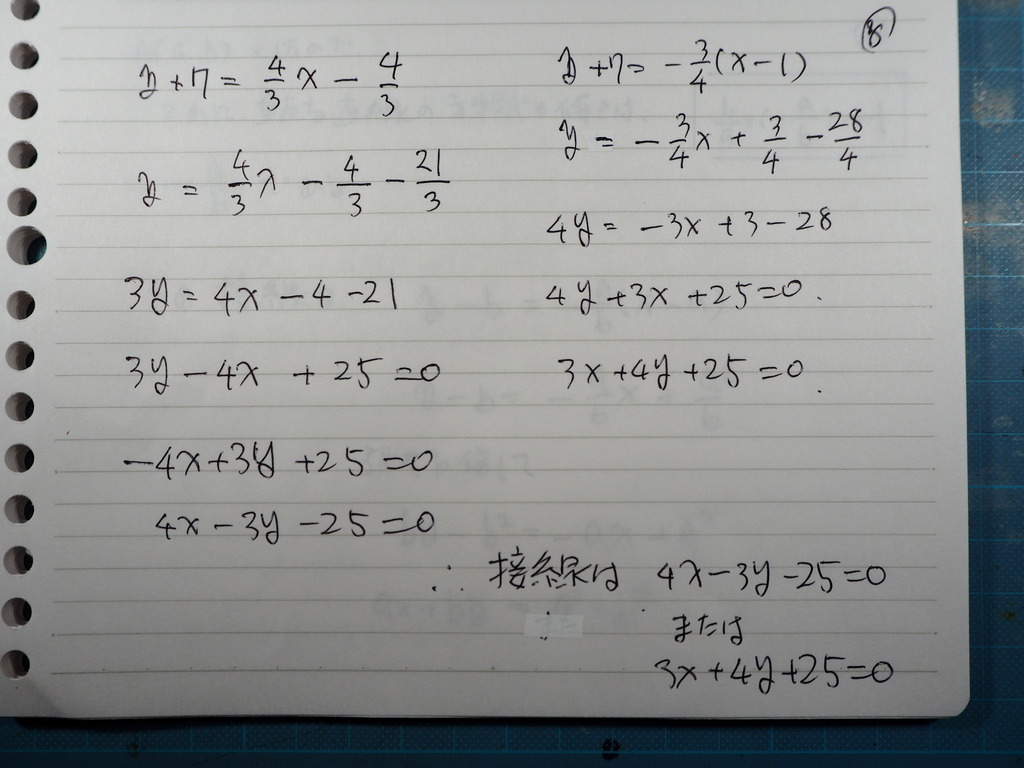 ⑧
y+7 = 4/3 x - 4/3
y = 4/3 x - 4/3 - 21/3
3y = 4x - 4 - 21
3y - 4x + 25 = 0
-4x+3y+25=0
4x-3y-25=0
y+7= -3/4(x-1)
y = -3/4 x + 3/4 - 28/4
4y = -3x+3-28
4y+3x+25=0.
3x+4y+25=0.
∴ 接線は 4x-3y-25=0
または
3x+4y+25=0